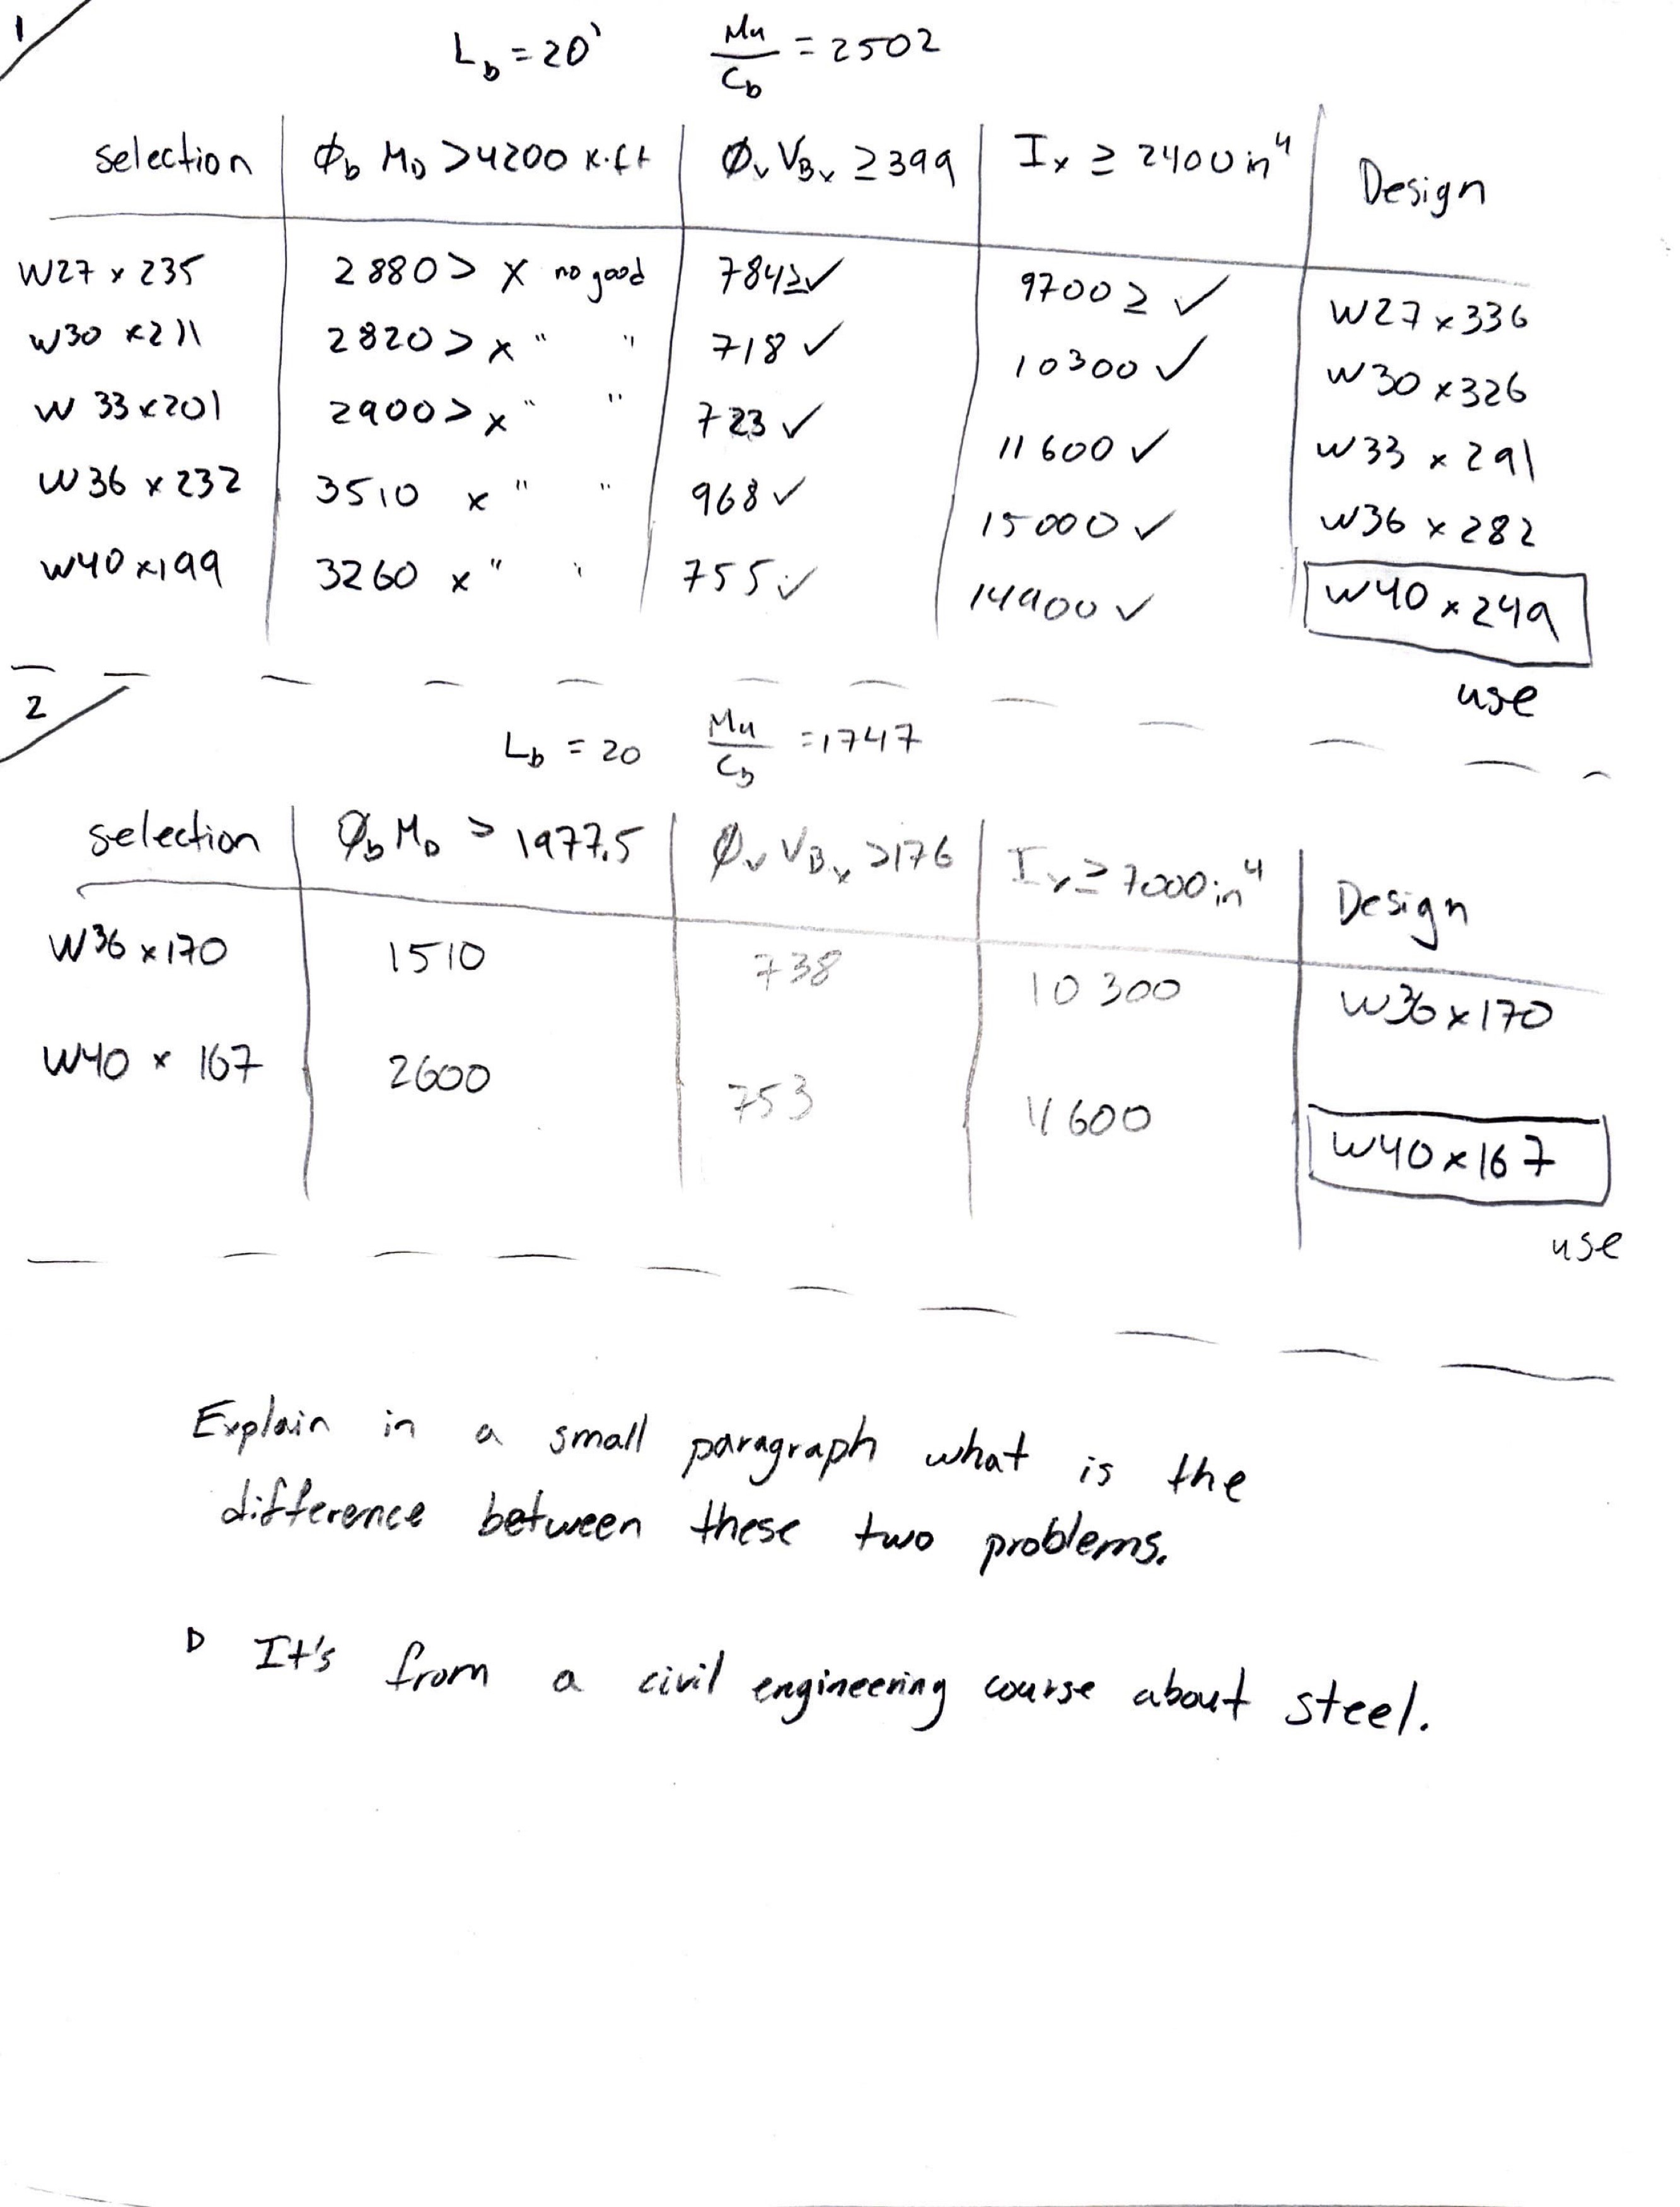 1
L_b = 20' Mu/C_b = 2502
selection | ϕ_b M_D > 4200 k.ft | ϕ_v V_Bx ≥ 399 | I_x ≥ 2400 in⁴ | Design
W27 x 235 | 2880 > x no good | 784 ≥ ✓ | 9700 ≥ ✓ | W27 x 336
W30 x 211 | 2820 > x " " | 718 ✓ | 10300 ✓ | W30 x 326
W 33 x 201 | 2900 > x " " | 723 ✓ | 11600 ✓ | W33 x 291
W36 x 232 | 3510 x " " | 968 ✓ | 15000 ✓ | W36 x 282
W40 x 199 | 3260 x " " | 755 ✓ | 14900 ✓ | W40 x 249
use
2
L_b = 20 Mu/C_b = 1747
selection | ϕ_b M_D > 1977.5 | ϕ_v V_Bx > 176 | I_x ≥ 7000 in⁴ | Design
W36 x 170 | 1510 | 738 | 10 300 | W36 x 170
W40 x 167 | 2600 | 753 | 11 600 | W40 x 167
use
Explain in a small paragraph what is the
difference between these two problems.
D It's from a civil engineering course about steel.